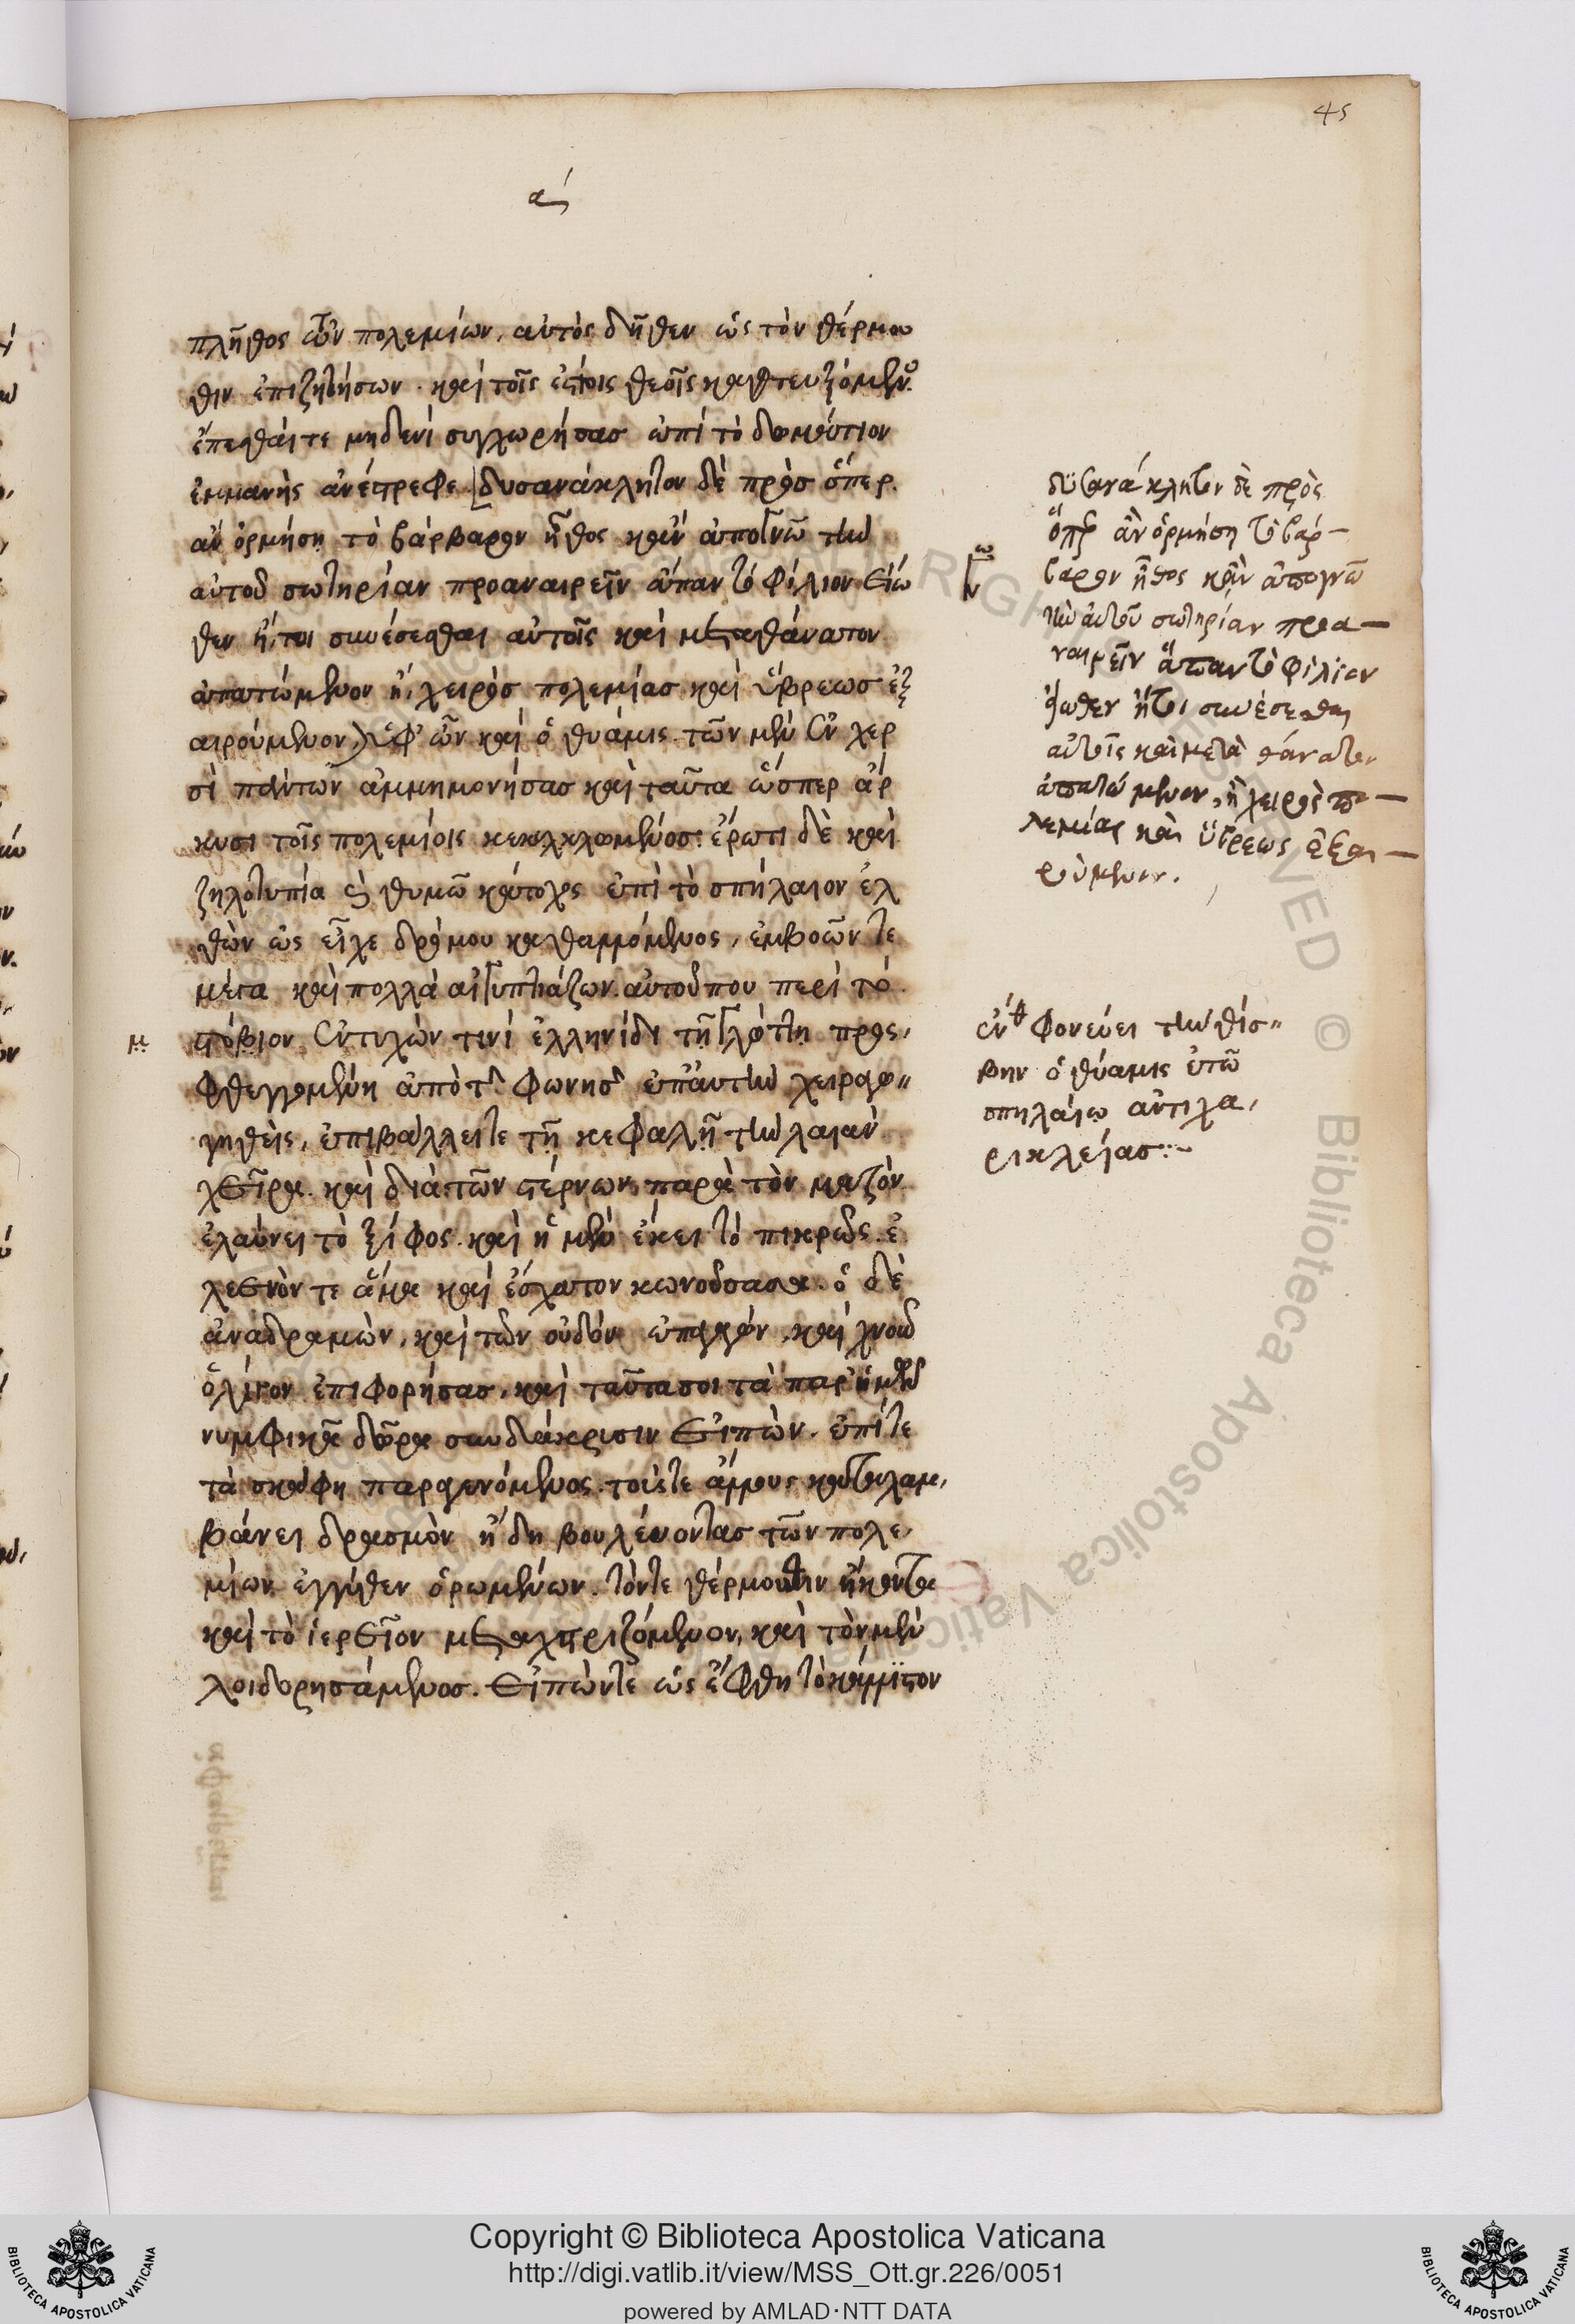 45
α
πλῆθος τῶν πολεμίων. αὐτὸς δῆθεν ὡς τὸν θέρμου
θιν ἐπιζητήσων. καὶ τοῖς ἑστίοις θεοῖς κατευξόμενος.
ἕπεσθαί τε μηδενὶ συγχωρήσας ἐπὶ τὸ δωμάτιον
ἐμμανὴς ἀνέστρεφε δυσανάκλητον δὲ πρὸς ὅπερ
ἂν ὁρμήσῃ τὸ βάρβαρον ἦθος κἂν ἀπογνῶ τὴν
αὐτοῦ σωτηρίαν προαναιρεῖν ἅπαν τὸ φίλιον εἰώ
θεν ἤτοι συνέσεσθαι αὐτοῖς καὶ μετὰ θάνατον
ἀπατώμενον ἢ χειρὸς πολεμίας καὶ ὕβρεως ἐξ
αιρούμενον) ὑφ' ὧν καὶ ὁ θυάμις τῶν μὲν ἐν χερ
σὶ πάντων ἀμνημονήσας καὶ ταῦτα ὥσπερ ἄρ
κυσι τοῖς πολεμίοις κεκυκλωμένος. ἔρωτι δὲ καὶ
ζηλοτυπία καὶ θυμῶ κάτοχος ἐπὶ τὸ σπήλαιον ἐλ
θὼν ὡς εἶχε δρόμου καθαλλόμενος, ἐμβοῶν τε
μέγα καὶ πολλὰ αἰγυπτιάζων. αὐτοῦ που περὶ τὸ
στόμιον ἐντυχών τινὶ ἑλληνίδι τῇ γλώττῃ προς,
φθεγγομένῃ ἀπὸ τῆς φωνῆς ἐπ' αὐτὴν χειραγω
γηθεὶς, ἐπιβάλλει τε τῇ κεφαλῇ τὴν λαιὰν
χεῖρα. καὶ διὰ τῶν στέρνων παρὰ τὸν μαζὸν
ἐλαύνει τὸ ξίφος. καὶ ἡ μὲν ἔκειτο πικρῶς. ἐ
λεεινὸν τε ἅμα καὶ ἔσχατον κωκύσασα. ὁ δὲ
ἀναδραμὼν, καὶ τὸν οὐδὸν ἐπαγαγὼν, καὶ χνοῦ
ὀλίγον ἐπιφορήσας, καὶ ταῦτά σοι τὰ παρ' ἡμῶν
νυμφικὰ δῶρα σὺν δακρύσιν εἰπὼν. ἐπί τε
τὰ σκάφη παραγενόμενος. τούς τε ἄλλους καταλαμ,
βάνει δρασμὸν ἤδη βουλεύοντας τῶν πολε,
μίων ἐγγύθεν ὁρωμένων. τόν τε θέρμουθιν ἥκοντα
καὶ τὸ ἱερεῖον μεταχειριζόμενον, καὶ τὸν μὲν
λοιδορησάμενος. εἰπών τε ὡς ἔφθη τὸ κάλλιστον
δυσανάκλητον δὲ πρὸς
ὅπερ ἂν ὁρμήσῃ τὸ βάρ-
βαρον ἦθος κἂν ἀπογνῶ
τὴν αὐτοῦ σωτηρίαν προα-
ναιρεῖν ἅπαν τὸ φίλιον
εἴωθεν ἤτοι συνέσεσθαι
αὐτοῖς καὶ μετὰ θάνατον
ἀπατώμενον, ἢ χειρὸς πο-
λεμίας καὶ ὕβρεως ἐξαι-
ρούμενον.
ἐνθ φονεύει τὴν θίσ
βην ὁ θύαμις ἐν τῶ
σπηλαίω ἀντὶ χα,
ρικλείας:-
Copyright © Biblioteca Apostolica Vaticana
http://digi.vatlib.it/view/MSS_Ott.gr.226/0051
powered by AMLAD·NTT DATA